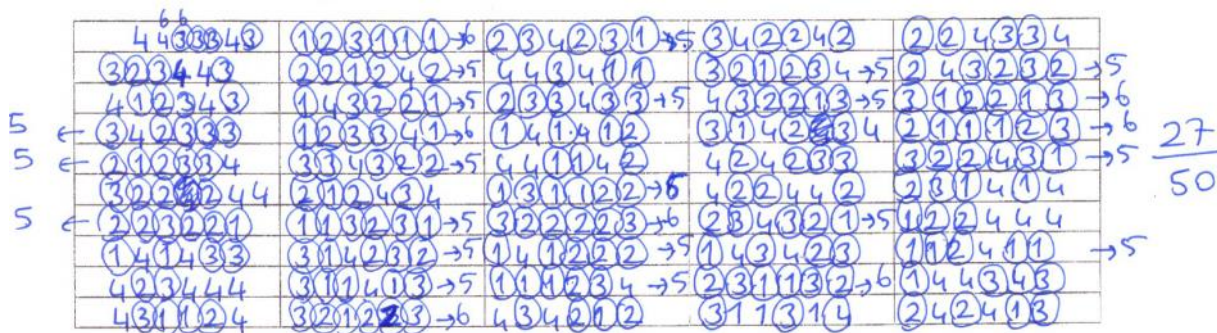 6 6
4 4 3 3 3 4 3 1 2 3 1 1 1 →6 2 3 4 2 3 1 →5 3 4 2 2 4 2 2 2 4 3 3 4
3 2 3 4 4 3 2 2 1 2 4 2 →5 4 4 3 4 1 1 3 2 1 2 3 4 →5 2 4 3 2 3 2 →5
4 1 2 3 4 3 1 4 3 2 2 1 →5 2 3 3 4 3 3 →5 4 3 2 2 1 3 →5 3 1 2 2 1 3 →6
5 ← 3 4 2 3 3 3 1 2 3 3 4 1 →6 1 4 1 4 1 2 3 1 4 2 3 4 2 1 1 1 2 3 →6
5 ← 2 1 2 3 3 4 3 3 4 3 2 2 →5 4 4 1 1 4 2 4 2 4 2 3 3 3 2 2 4 3 1 →5
3 2 2 2 4 4 2 1 2 4 3 4 1 3 1 1 2 2 →6 4 2 2 4 4 2 2 3 1 4 1 4
5 ← 2 2 3 2 2 1 1 1 3 2 3 1 →5 3 2 2 2 2 3 →6 2 3 4 3 2 1 →5 1 2 2 4 4 4
1 4 1 4 3 3 3 1 4 2 3 2 →5 1 4 1 2 2 2 →5 1 4 3 4 2 3 1 1 2 4 1 1 →5
4 2 3 4 4 4 3 1 1 4 1 3 →5 1 1 1 2 3 4 →5 2 3 1 1 3 2 →6 1 4 4 3 4 3
4 3 1 1 2 4 3 2 1 2 3 3 →6 4 3 4 2 1 2 3 1 1 3 1 4 2 4 2 4 1 3
27
50